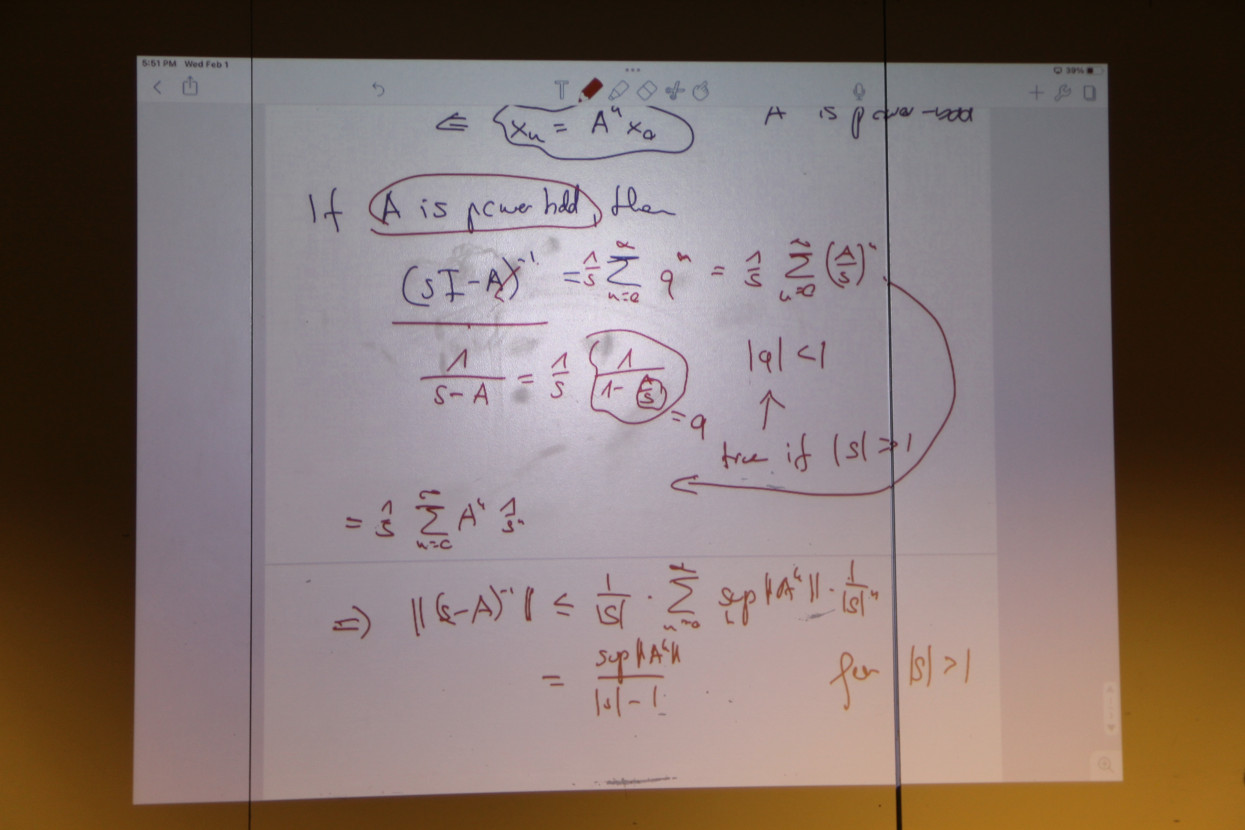 5:51 PM Wed Feb 1 39%
⇐ xₙ = Aⁿ x₀ A is power-bdd
If A is power bdd, then
(sI-A)⁻¹ = 1/s ∑_{n=0}^∞ qⁿ = 1/s ∑_{n=0}^∞ (A/s)ⁿ
1/(s-A) = 1/s 1/(1-A/s) = q |q| < 1
true if |s| > 1
= 1/s ∑_{n=0}^∞ Aⁿ 1/sⁿ
⇒ ||(s-A)⁻¹|| ≤ 1/|s| · ∑_{n=0}^∞ sup ||Aⁿ|| · 1/|s|ⁿ
= sup ||Aⁿ|| / (|s| - 1) for |s| > 1